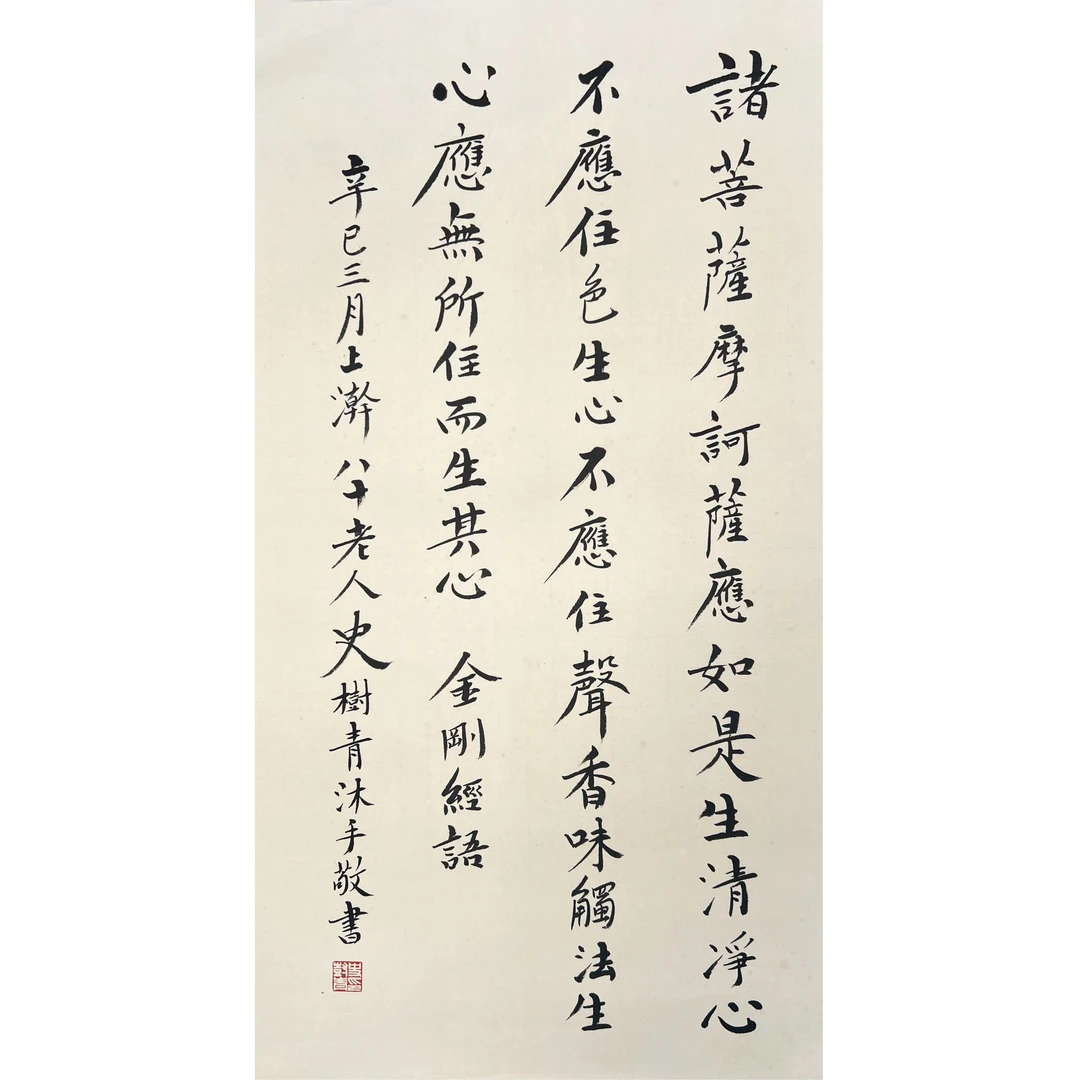 諸菩薩摩訶薩應如是生清淨心
不應住色生心不應住聲香味觸法生
心應無所住而生其心 金剛經語
辛巳三月上澣八十老人史樹青沐手敬書